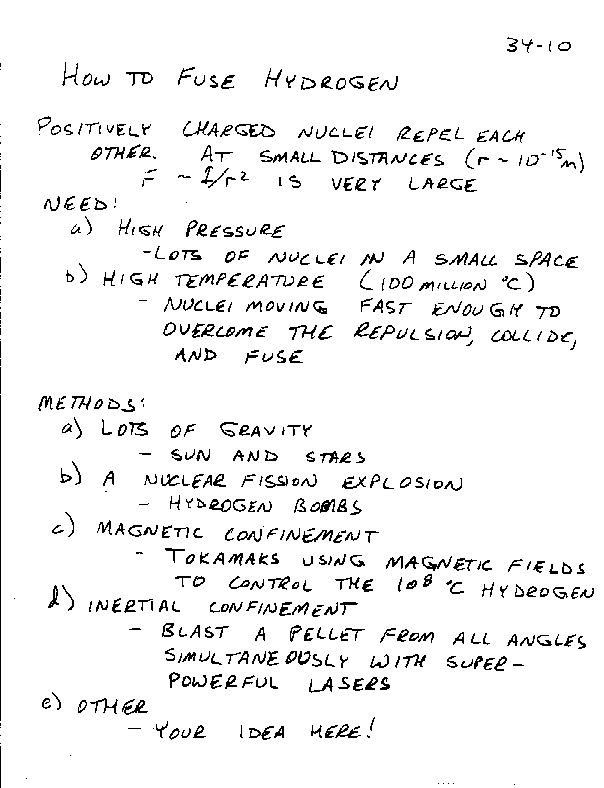 34-10
HOW TO FUSE HYDROGEN
POSITIVELY CHARGED NUCLEI REPEL EACH
OTHER. AT SMALL DISTANCES (r ~ 10⁻¹⁵m)
F ~ 1/r² IS VERY LARGE
NEED:
a) HIGH PRESSURE
- LOTS OF NUCLEI IN A SMALL SPACE
b) HIGH TEMPERATURE (100 MILLION °C)
- NUCLEI MOVING FAST ENOUGH TO
OVERCOME THE REPULSION, COLLIDE,
AND FUSE
METHODS:
a) LOTS OF GRAVITY
- SUN AND STARS
b) A NUCLEAR FISSION EXPLOSION
- HYDROGEN BOMBS
c) MAGNETIC CONFINEMENT
- TOKAMAKS USING MAGNETIC FIELDS
TO CONTROL THE 10⁸ °C HYDROGEN
d) INERTIAL CONFINEMENT
- BLAST A PELLET FROM ALL ANGLES
SIMULTANEOUSLY WITH SUPER-
POWERFUL LASERS
e) OTHER
- YOUR IDEA HERE!